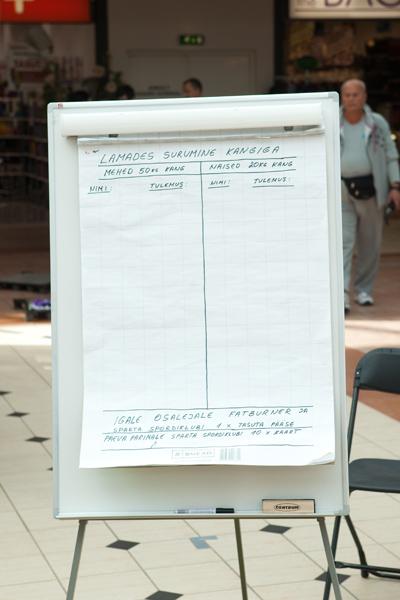 LAMADES SURUMINE KANGIGA
MEHED 50KG KANG NAISED 20KG KANG
NIMI: TULEMUS: NIMI: TULEMUS:
IGALE OSALEJALE FATBURNER JA
SPARTA SPORDIKLUBI 1 X TASUTA PÄÄSE
PÄEVA PARIMALE SPARTA SPORDIKLUBI 10 X KAART
CENTRUM